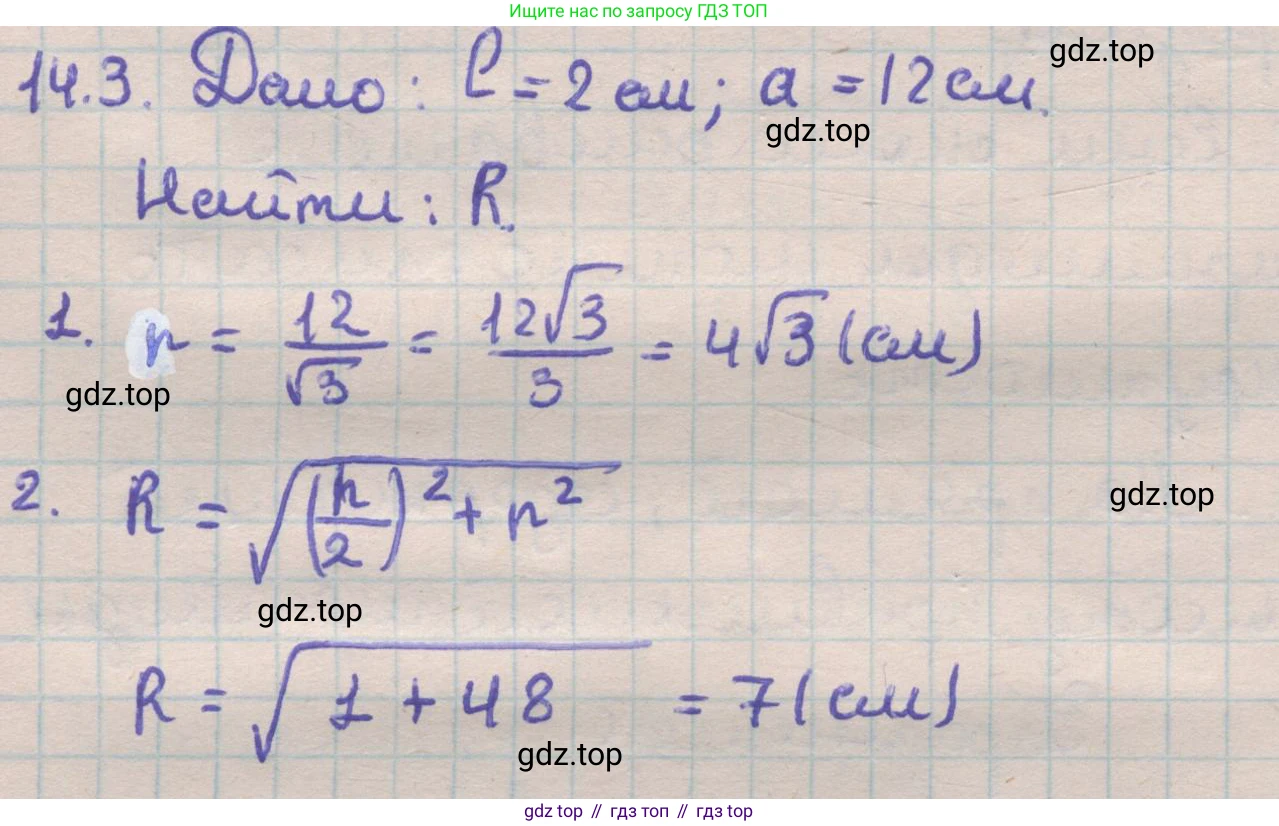 Ищите нас по запросу ГДЗ ТОП
14.3. Дано: l = 2 см; a = 12 см.
gdz.top
gdz.top
Найти: R.
1. r = 12/√3 = 12√3/3 = 4√3 (см)
gdz.top
2. R = √((h/2)² + r²)
gdz.top
gdz.top
R = √(1 + 48) = 7 (см)
gdz.top
gdz top // гдз топ // гдз top